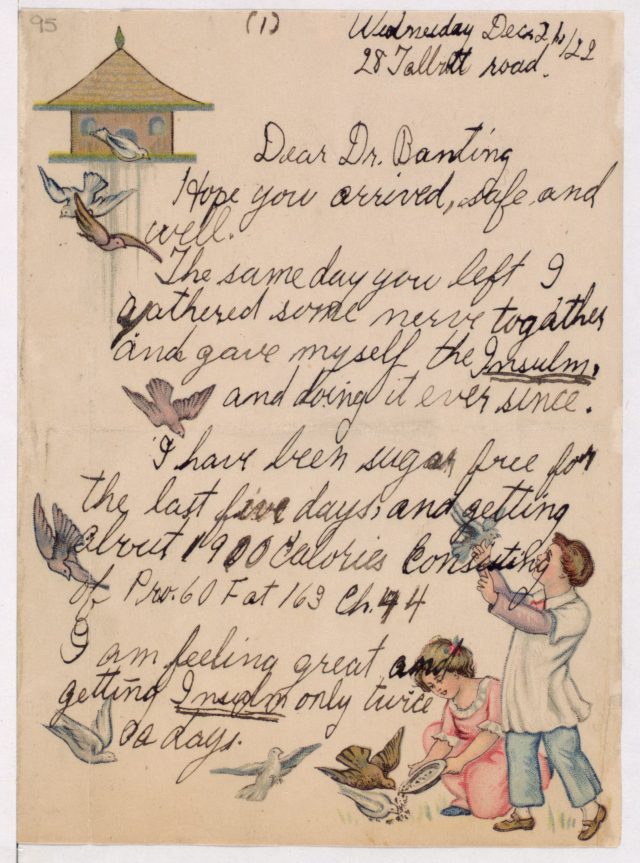 95
(1)
Wednesday Dec 24/22
28 Talbott road.
Dear Dr. Banting
Hope you arrived, safe and
well.
The same day you left I
gathered some nerve togather
and gave myself the Insulin.
and doing it ever since.
I have been sugar free for
the last five days, and getting
about 1900 Calories Consisting
of Pro. 60 Fat 163 Ch. 44
I am feeling great and
getting Insulin only twice
a days.